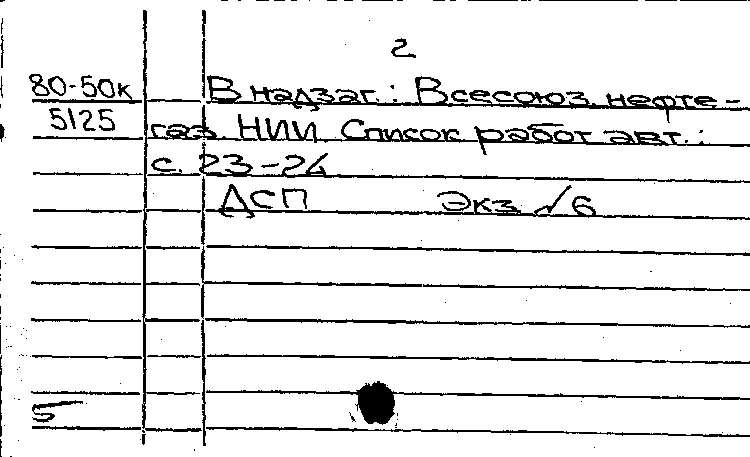 2
80-50к В надзаг.: Всесоюз. нефте-
5125 газ. НИИ Список работ авт.:
с. 23-24
ДСП Экз. №6
5